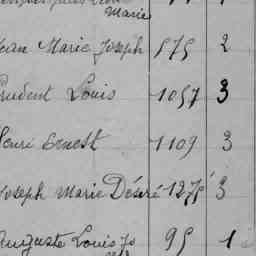 Marie
Jean Marie Joseph 575 2
Prudent Louis 1057 3
Henri Ernest 1109 3
Joseph Marie Désiré 1275 3
Auguste Louis Jo 95 1